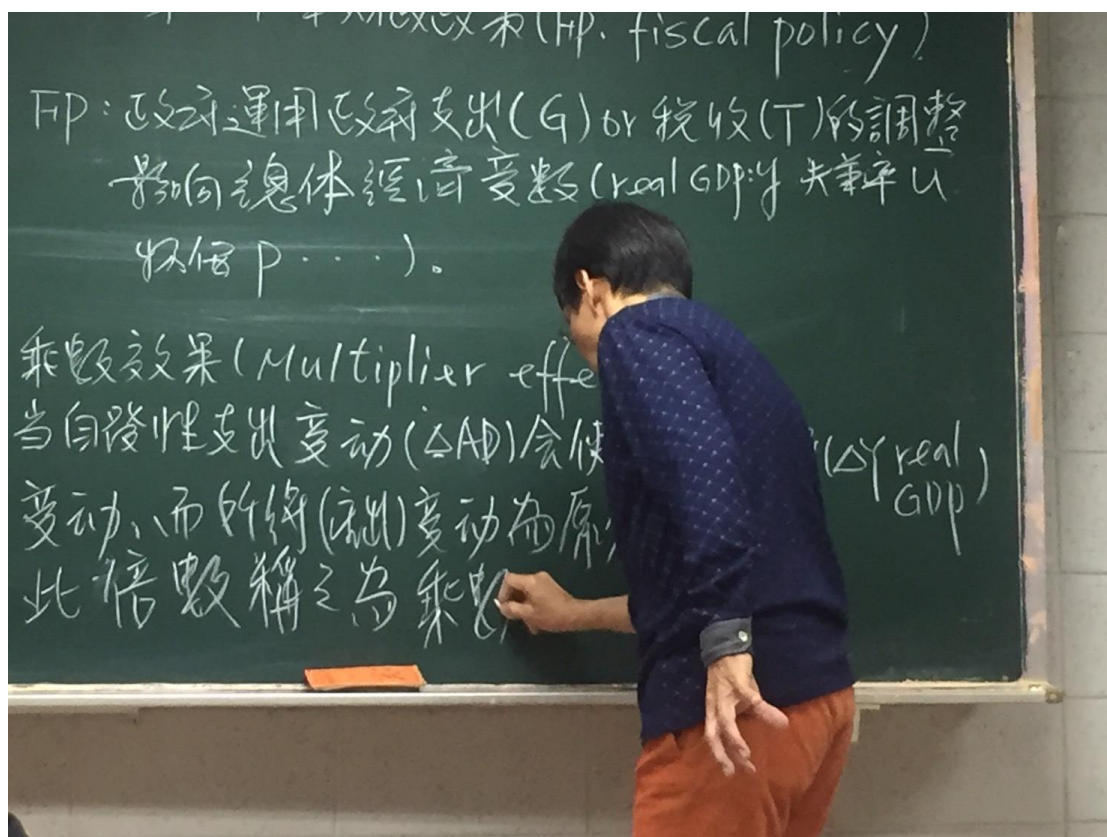 效果(FP. fiscal policy)
FP:政府運用政府支出(G) or 稅收(T)的調整
影响總体經濟变数(real GDP:y 失業率 u
物価 p ‧ ‧ ‧ ‧ )。
乘數效果(Multiplier effe
当自發性支出变动(△AD)会使 (△Y real GDP)
变动、而所得(产出)变动為原
此倍數稱之為乘數